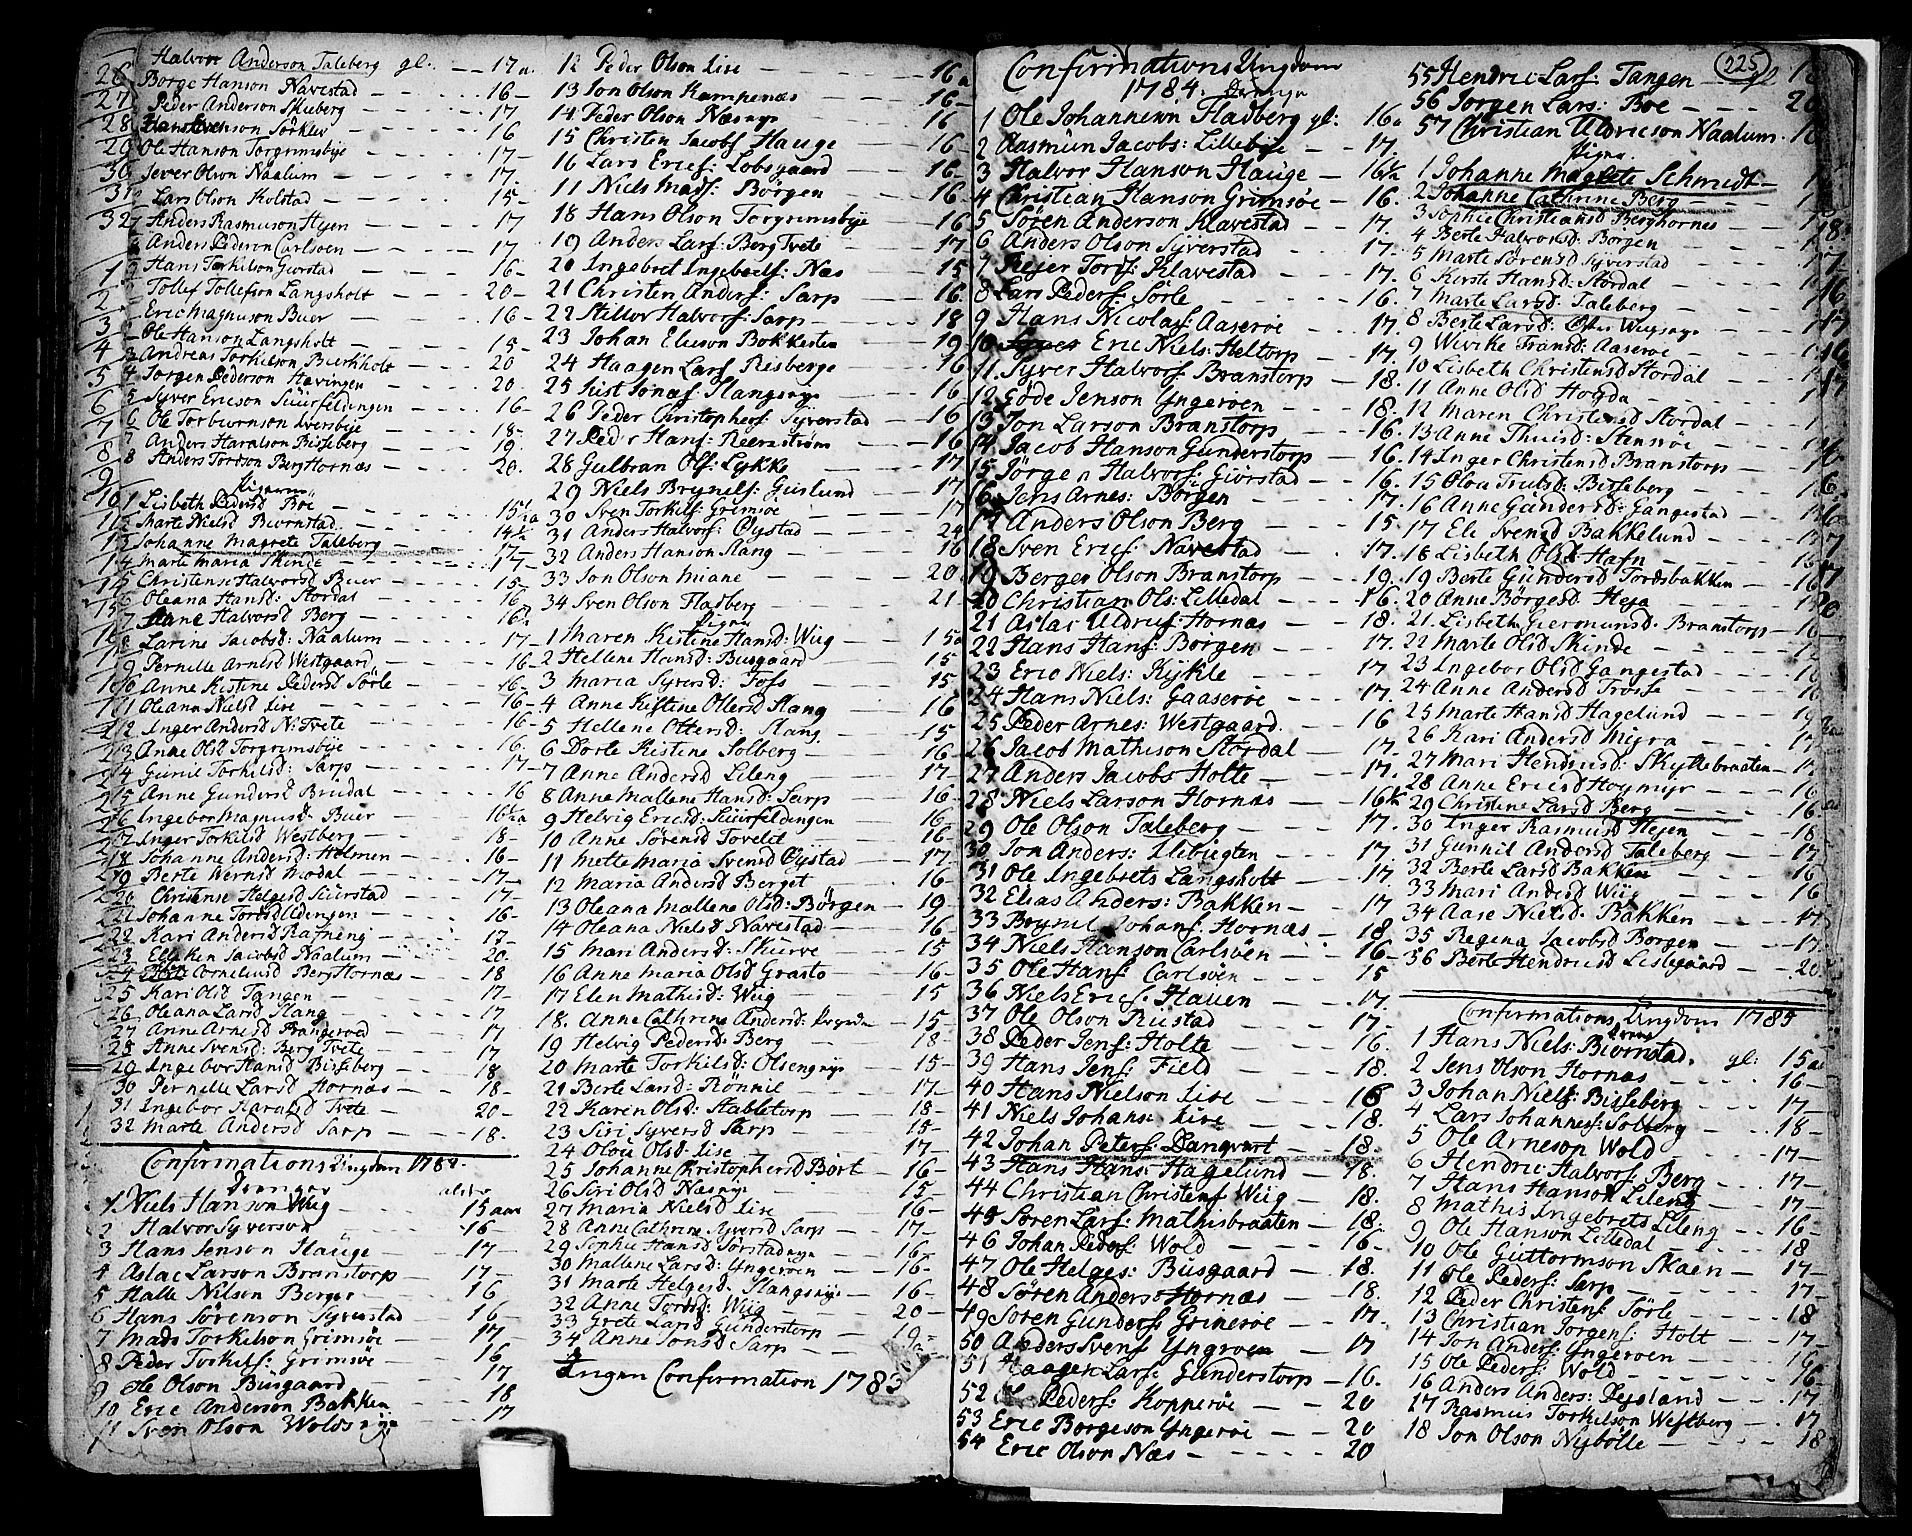 Halvor Anderson Taleberg gl. — 17 a.
26 Borge Hanson Navestad — 16 —
27 Peder Anderson Skieberg — 17
28 Hans Svenson Sörklev — 16
29 Ole Hanson Torgrimsbye — 17 —
30 Sever Olson Naalum — 17.
31 Lars Olson Kolstad — 15 —
32 Anders Rasmuson Hejen — 17
Anders Pederson Carlsöen — 17
Hans Torkilson Giorstad — 16 —
Tollef Tollefson Langsholt — 20 —
Eric Magnuson Buer — 16 —
Ole Hanson Langsholt — 15 —
3 Andreas Torkilson Bierkholt — 20
4 Jorgen Pederson Havingen — 20.
5 Syver Ericson Suurfeldingen — 16 —
6 Ole Torbiornson Iversbye — 18 —
7 Anders Haralson Bisseberg — 19.
8 Anders Tordson Berg Hornæs — 20.
Pigerne
1 Lisbeth Pedersd Boe — 15½ a
2 Marte Nielsd Biornstad — 14½
Johanne Magrete Taleberg — 17 —
4 Marte Maria Skinde — 17 —
5 Christense Halvorsd Buer — 15 —
6 Oleana Hansd: Stordal — 16
7 Anne Halvorsd Berg — 16½
8 Larine Jacobsd: Naalum — 17 —
9 Pernille Arnesd Westgaard — 16 —
10 Anne Kistine Pedersd Sörle — 16 —
11 Oleana Nielsd Lise — 16 —
12 Inger Andersd N: Tvete — 16 —
13 Anne Olsd Torgrimsbye — 16.
14 Gunil Torkilsd: Sarp — 17 —
15 Anne Gundersd Brudal — 16
16 Ingebor Magnusd: Buer — 16½ a
17 Inger Torkilsd Westberg — 18 —
18 Johanne Andersd: Holmen — 16 —
19 Berte Wernsd Modal — 17 —
20 Christense Helgesd Suurstad — 17 —
21 Johanne Tordsd Oldengen — 16 —
22 Kari Andersd Rafneng — 17 —
23 Elleken Jacobsd Naalum — 20 —
24 Corneliusd Berg Hornæs — 18
25 Kari Olsd Tangen — 17 —
26 Oleana Larsd Slang — 17
27 Anne Arnesd Prangeroed — 17
28 Anne Svensd: Berg Tvete — 17
29 Ingebor Hansd Bisseberg — 18
30 Pernelle Larsd Hornæs — 18 —
31 Ingebor Haralsd Tvete — 20 —
32 Marte Andersd Sarp — 18.
Confirmations Ungdom 1782.
Drenger alder
1 Niels Hanson Wiig — 15 aar
2 Halvor Syverson — 16
3 Hans Jenson Hauge — 17 —
4 Aslac Larson Branstorp — 17 —
5 Halle Nilson Berger — 16
6 Hans Sörenson Syverstad — 16 —
7 Mads Torkelson Grimsöe — 17 —
8 Peder Torkilss: Grimsöe — 16
9 Ole Olson Busgaard — 17
10 Eric Anderson Bakken — 18
11 Sven Olson Woldsnye — 17
12 Peder Olson Lise — 16 a
13 Jon Olson Kampenæs — 16 —
14 Peder Olson Næsnye — 16
15 Christen Jacobs Hauge — 16 —
16 Lars Erics: Lobsgaard — 16 —
17 Niels Mads: Börgen — 16
18 Hans Olson Torgrimsbye — 16
19 Anders Lars: Berg Tvete — 17
20 Ingebret Ingebrets: Næs — 15
21 Christen Anders: Sarp — 16
22 Stillor Halvors: Sarp — 18
23 Johan Elieson Bokkesten — 19
24 Haagen Lars Risberge — 16
25 Just Jonas: Slangsnye — 16
26 Peder Christophers: Syverstad — 16
27 Peder Hans: Reenström — 16
28 Gulbran Ols: Lykke — 17
29 Niels Brynels: Guslund — 17
30 Sven Torkils: Grimsöe — 17
31 Anders Halvors: Oÿstad — 24
32 Anders Hanson Slang — 16
33 Jon Olson Miane — 20
34 Sven Olson Fladberg — 21
Pigerne
1 Maren Kistine Hansd: Wiig — 15 a
2 Hellene Hansd: Busgaard — 15
3 Maria Syversd: Foss — 15
4 Anne Kistine Ottersd Slang — 16
5 Hellene Ottersd: Slang — 15
6 Dorte Kistine Solberg — 16 —
7 Anne Andersd Lileng — 17 —
8 Anne Mallene Hansd: Sarp — 16 —
9 Helvig Ericsd: Suurfeldengen — 16
10 Anne Sörensd Torelid — 16
11 Mette Maria Svensd Oÿstad — 17
12 Maria Andersd Berget — 16 —
13 Oleana Mallene Olsd: Börgen — 19
14 Oleana Nielsd Navestad — 16
15 Mari Andersd: Skurve — 15
16 Anne Maria Olsd Grasto — 16 —
17 Elen Mathisd: Wiig — 15
18. Anne Cathrine Andersd: — 15 —
19 Helvig Pedersd: Berg — 18 —
20 Marte Torkilsd: Olsengnye — 15 —
21 Berte Larsd: Rönnie — 17 —
22 Karen Olsd: Stabletorp — 18 —
23 Siri Syversd Sarp — 15 —
24 Olou Olsd Lise — 17 —
25 Johanne Christophersd Bört — 16 —
26 Siri Olsd Næsnye — 15 —
27 Maria Nielsd Lise — 16 —
28 Anne Cathrine Syversd Sarp — 17 —
29 Sophie Hansd Sörstadnye — 16 —
30 Mallene Larsd: Yngeröen — 16 —
31 Marte Helgesd: Slangsnye — 16 —
32 Anne Tordsd: Wiig — 20 —
33 Grete Larsd Gunderstorp — 19 —
34 Anne Jonsd Sarp —
Ingen Confirmation 1783
Confirmations Ungdom
1784. Drenge
1 Ole Johanneson Fladberg gl: 16 a
2 Aasmun Jacobs: Lillebye — 17.
3 Halvor Hanson Hauge — 16½
4 Christian Hanson Grimsöe — 16.
5 Soren Anderson Klavestad — 17.
6 Anders Olson Syverstad — 17.
7 Rejer Tords: Klavestad — 17.
8 Lars Peders: Sörle — 16.
9 Hans Nicolas: Aaseröe — 17.
10 Eric Niels: Heltorp — 17.
11 Syver Halvors: Branstorp — 18.
12 Göde Jenson Yngeroen — 18.
13 Jon Larson Branstorp — 16.
14 Jacob Hanson Gunderstorp — 16.
15 Jörgen Halvors: Giörstad — 16.
16 Jens Arnes: Börgen — 17.
17 Anders Olson Berg — 15.
18 Sven Erics: Navestad — 17.
19 Berger Olson Branstorp — 19.
20 Christian Ols: Lilledal — 16.
21 Aslac Uldrics: Hornæs — 18.
22 Hans Hans: Borgen — 17.
23 Eric Niels: Kykle — 17
24 Hans Niels: Gaaseröe — 17.
25 Peder Arnes: Westgaard — 16
26 Jacob Mathison Stordal — 17.
27 Anders Jacobs Holte — 17.
28 Niels Larson Hornæs — 16½
29 Ole Olson Taleberg — 17.
30 Jon Anders: — 17
31 Ole Ingebrets Langsholt — 17.
32 Elias Anders: Bakken — 17
33 Brynil Johans: Hornæs — 18
34 Niels Hanson Carlsöen — 16 —
35 Ole Hans: Carlsöen — 15
36 Niels Erics. Hauen — 17.
37 Ole Olson Rustad — 17 —
38 Peder Jens: Holte — 16.
39 Hans Jens: Field — 18.
40 Hans Nielson Lise — 16
41 Niels Johans Lise — 18.
42 Johan Peters: Danqvart — 18.
43 Hans Hans: Hagelund — 18.
44 Christian Christens Wiig — 18.
45 Soren Lars: Mathisbraaten — 18.
46 Johan Peders: Wold — 16 —
47 Ole Helges: Busgaard — 18.
48 Sören Anders: Hornæs — 18.
49 Soren Gunders Grimeröe — 17.
50 Anders Svens Yngroen — 17
51 Haagen Lars Gunderstorp — 16.
52 Peders: Kopperöe — 20
53 Eric Borgeson Yngeröe — 20
54 Eric Olson Næs — 20
225
55 Hendric Lars: Tangen
56 Jorgen Lars: Boe
57 Christian Uldricson Naalum.
Pigerne.
1 Johanne Magrete Schmidt —
2 Johanne Cathrine Berg —
3 Sophie Christiansd Berghornes —
4 Berte Halvorsd. Borgen — 18.
5 Marte Sörensd Syverstad — 17
6 Kirste Hansd: Stordal — 16
7 Marte Larsd. Taleberg —
8 Berte Larsd: Wiigsnye — 17
9 Wivike Fransd: Aaseröe — 16
10 Lisbeth Christensd Stordal — 17
11 Anne Olsd Hogda —
12 Maren Christensd Stordal —
13 Anne Thuisd: Stensröe —
14 Inger Christensd Branstorp —
15 Olou Trulsd: Bisseberg —
16 Anne Gundersd: Gangestad —
17 Ele Svensd Bakkelund — 17
18 Lisbeth Olsd Hafn — 16
19 Berte Gundersd Tordsbakken — 16
20 Anne Börgesd Heja — 20
21. Lisbeth Giermunsd. Branstorp — 16
22 Marte Olsd Skinde —
23 Ingebor Olsd Gangestad — 16
24 Anne Andersd Trosse —
25 Marte Hansd Hagelund —
26 Kari Andersd Myra —
27 Mari Hendricsd: Skyttebraaten —
28 Anne Ericsd Hoymyr — 16
29 Christine Larsd Berg — 16.
30 Inger Rasmusd Hejen — 18
31 Gunnil Andersd Taleberg — 17
32 Berte Larsd Bakken — 16
33 Mari Andersd Wiig — 16
34 Aase Nielsd. Bakken — 17
35 Regina Jacobsd Borgen — 17.
36 Berte Hendricsd Lislegaard — 20
Confirmations Ungdom 1785
Drenge
1 Hans Niels: Biornstad. gl: 15 aar
2 Jens Olson Hornæs — 16 —
3 Johan Niels: Bisseberg — 17 —
4 Lars Johannes: Solberg — 18 —
5 Ole Arneson Wold — 17 —
6 Hendric Halvors Berg — 17 —
7 Hans Hanson Lileng — 17 —
8 Mathis Ingebrets Lileng — 16 —
9 Ole Hanson Lilledal — 18
10 Ole Guttormson Skaen — 17 —
11 Ole Peders: Sarp — 17 —
12 Peder Christens Sörle — 18
13 Christian Jorgens: Holt — 17 —
14 Jon Anders: Yngeroen — 16
15 Ole Peders: Wold — 16
16 Anders Anders: — 17
17 Rasmus Torkilson Westberg — 17
18 Jon Olson Nybölle — 18